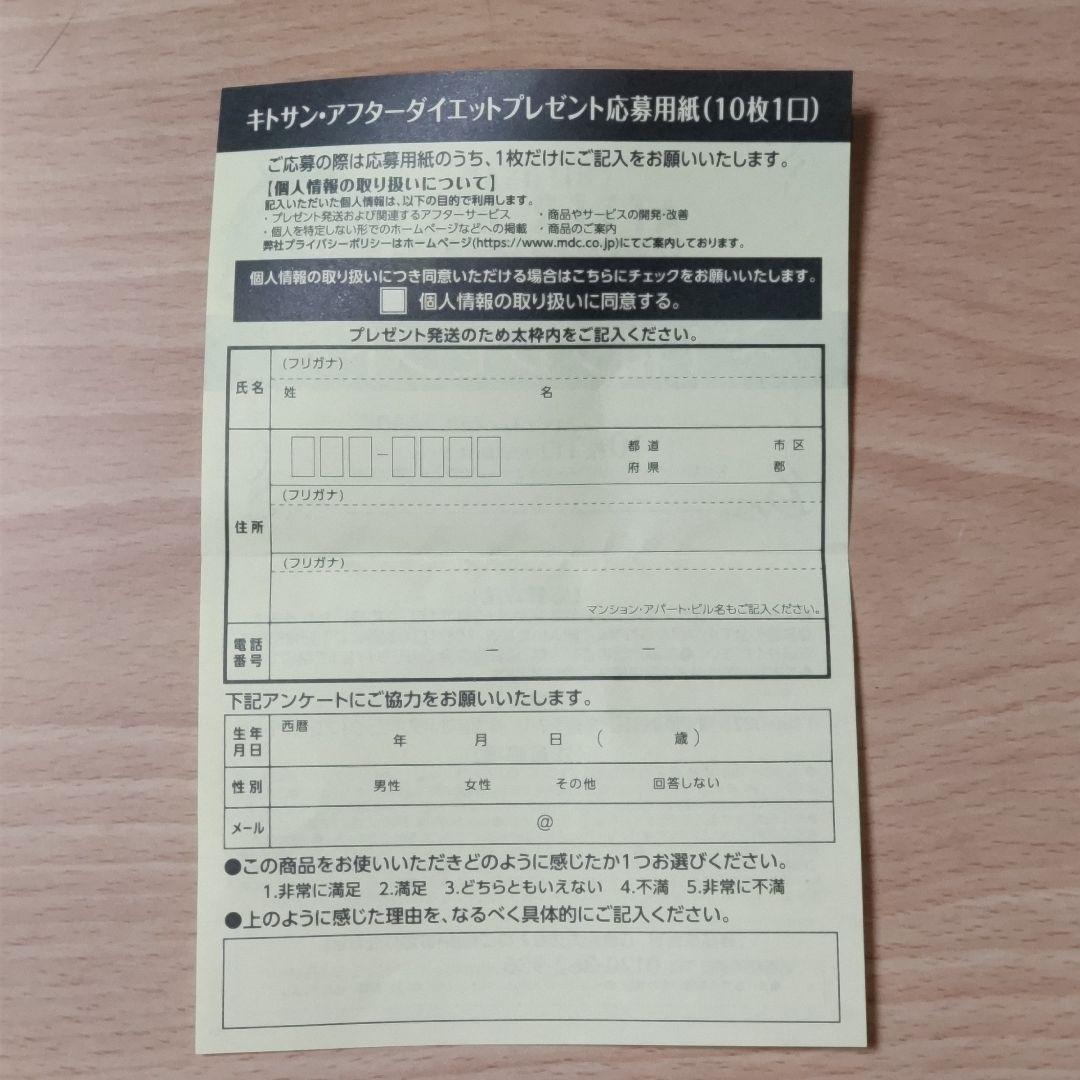 キトサン・アフターダイエットプレゼント応募用紙(10枚1口)
ご応募の際は応募用紙のうち、1枚だけにご記入をお願いいたします。
【個人情報の取り扱いについて】
記入いただいた個人情報は、以下の目的で利用します。
・プレゼント発送および関連するアフターサービス ・商品やサービスの開発・改善
・個人を特定しない形でのホームページなどへの掲載 ・商品のご案内
弊社プライバシーポリシーはホームページ(https://www.mdc.co.jp)にてご案内しております。
個人情報の取り扱いにつき同意いただける場合はこちらにチェックをお願いいたします。
個人情報の取り扱いに同意する。
プレゼント発送のため太枠内をご記入ください。
氏名
(フリガナ)
姓 名
住所
− 都道 市区
府県 郡
(フリガナ)
(フリガナ)
マンション・アパート・ビル名もご記入ください。
電話
番号
− −
下記アンケートにご協力をお願いいたします。
生年
月日
西暦
年 月 日 ( 歳)
性別 男性 女性 その他 回答しない
メール @
●この商品をお使いいただきどのように感じたか1つお選びください。
1.非常に満足 2.満足 3.どちらともいえない 4.不満 5.非常に不満
●上のように感じた理由を、なるべく具体的にご記入ください。